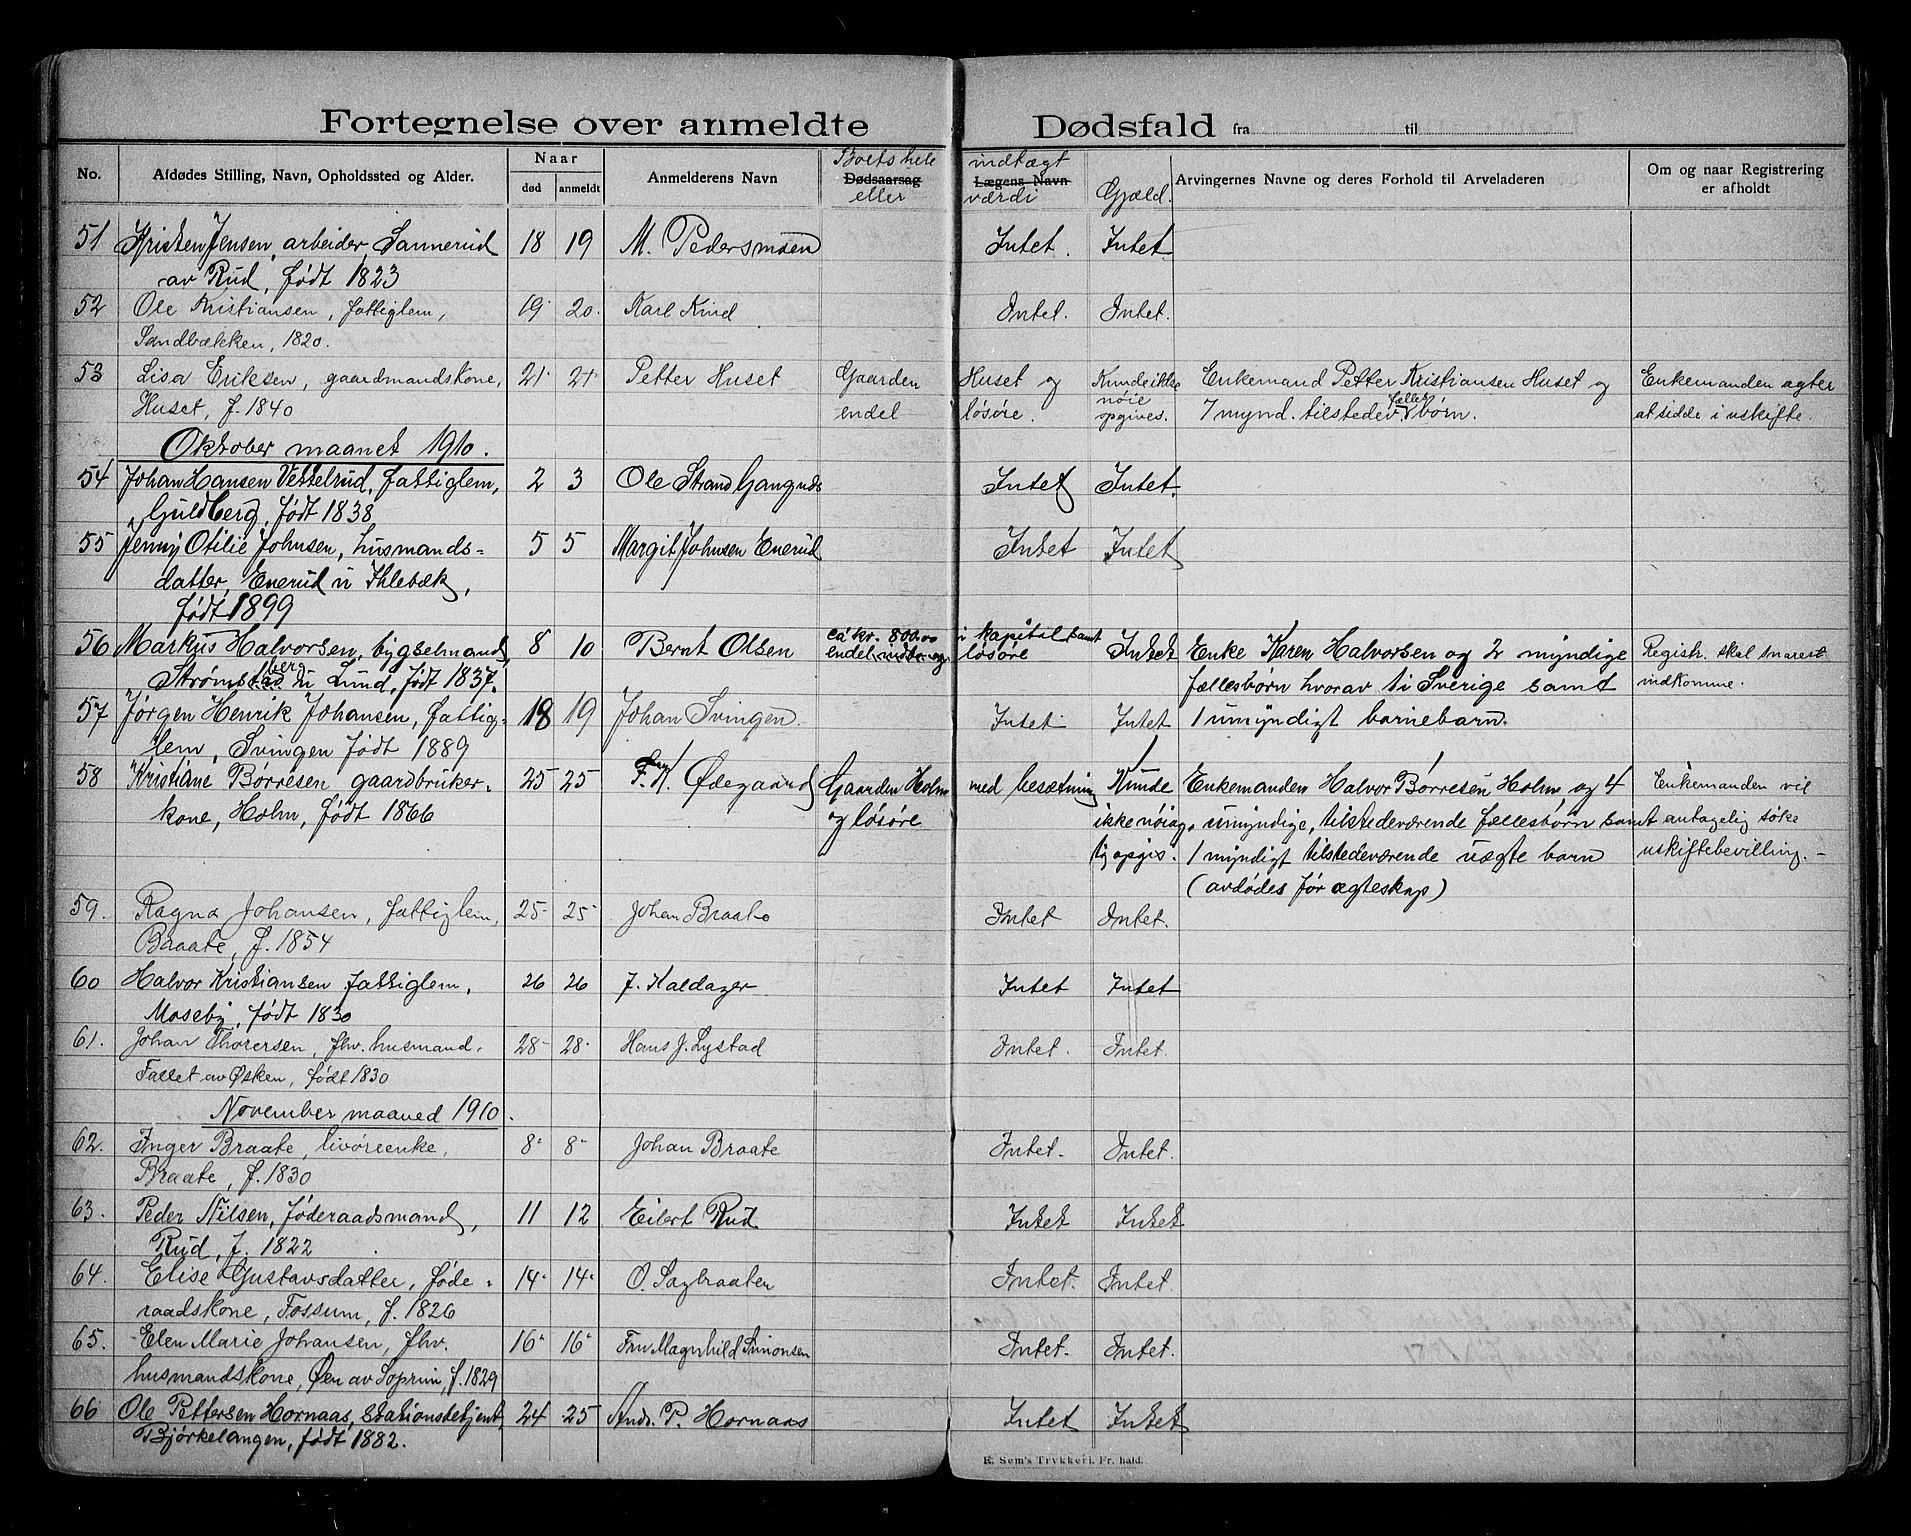 Fortegnelse over anmeldte Dødsfald fra til
No. Afdødes Stilling, Navn, Opholdssted og Alder. Naar død anmeldt Anmelderens Navn Boets hele Dødsaarsag eller indtægt Lægens Navn værdi Gjæld. Arvingernes Navne og deres Forhold til Arveladeren Om og naar Registrering er afholdt
51 Kristen Jensen, arbeider, Sannerud 18 19 M. Pedersmoen Intet. Intet.
av Rud, født 1823
52 Ole Kristiansen, fattiglem, 19 20. Karl Kind Intet. Intet.
Sandbækken, 1820.
53 Lisa Eriksen, gaardmandskone, 21 21 Petter Huset Gaarden Huset og Kunde ikke Enkemand Petter Kristiansen Huset og Enkemanden agter
Huset, f. 1840 endel løsøre. nøie opgives. 7 mynd. tilstedev. fælles børn. at sidde i uskifte.
Oktober maanet 1910.
54 Johan Hansen Vestelrud, fattiglem, 2 3 Ole Strand Intet Intet.
Guldberg, født 1838
55 Jenny Otilie Johnsen, husmands- 5 5 Margit Johnsen Enerud Intet Intet
datter, Enerud u Ihlebæk,
født 1899
56 Markus Halvorsen, bygselmand 8 10 Bernt Olsen ca kr. 800.00 i kapital samt Intet Enke Karen Halvorsen og 2 myndige Registr. skal snarest
Strømsberg u Lund, født 1837. endel løsøre fællesbørn hvorav 1 i Sverige samt indkomme.
57 Jørgen Henrik Johansen, fattig- 18 19 Johan Svingen. Intet. Intet 1 umyndigt barnebarn.
lem, Svingen født 1889
58 Kristiane Børresen gaardbruker- 25 25 F. K. Ødegaard Gaarden Holm med besætning Kunde Enkemanden Halvor Børresen Holm og 4 Enkemanden vil
kone, Holm, født 1866 og løsøre ikke nøiag- umyndige, tilstedeværende fællesbørn samt antagelig søke
tig opgis. 1 myndigt tilstedeværende uægte barn uskiftebevilling. –
(avdødes før ægteskap)
59. Ragna Johansen, fattiglem, 25 25 Johan Braate Intet Intet.
Braate, f. 1854
60 Halvor Kristiansen fattiglem, 26 26 J. Kaldager Intet Intet
Moseby, født 1830
61. Johan Thorersen, fhv. husmand, 28 28 Hans J. Lystad Intet. Intet.
Fallet av Øsken, født 1830
November maaned 1910.
62. Inger Braate, livøreenke, 8 8 Johan Braate Intet. Intet.
Braate, f. 1830
63. Peder Nilsen, føderaadsmand, 11 12 Eilert Rud Intet Intet
Rud, f. 1822
64. Elise Gustavsdatter, føde- 14 14 O. Sagbraaten Intet. Intet.
raadskone, Fossum, f. 1826
65. Elen Marie Johansen, fhv. 16 16 Fru Magnhild Simonsen Intet. Intet.
husmandskone, Øen av Soprim, f. 1829
66 Ole Pettersen Hornaas, stationsbetjent, 24 25 Andr. P. Hornaas Intet Intet
Bjørkelangen, født 1882.
E. Sem's Trykkeri. Fr. hald.